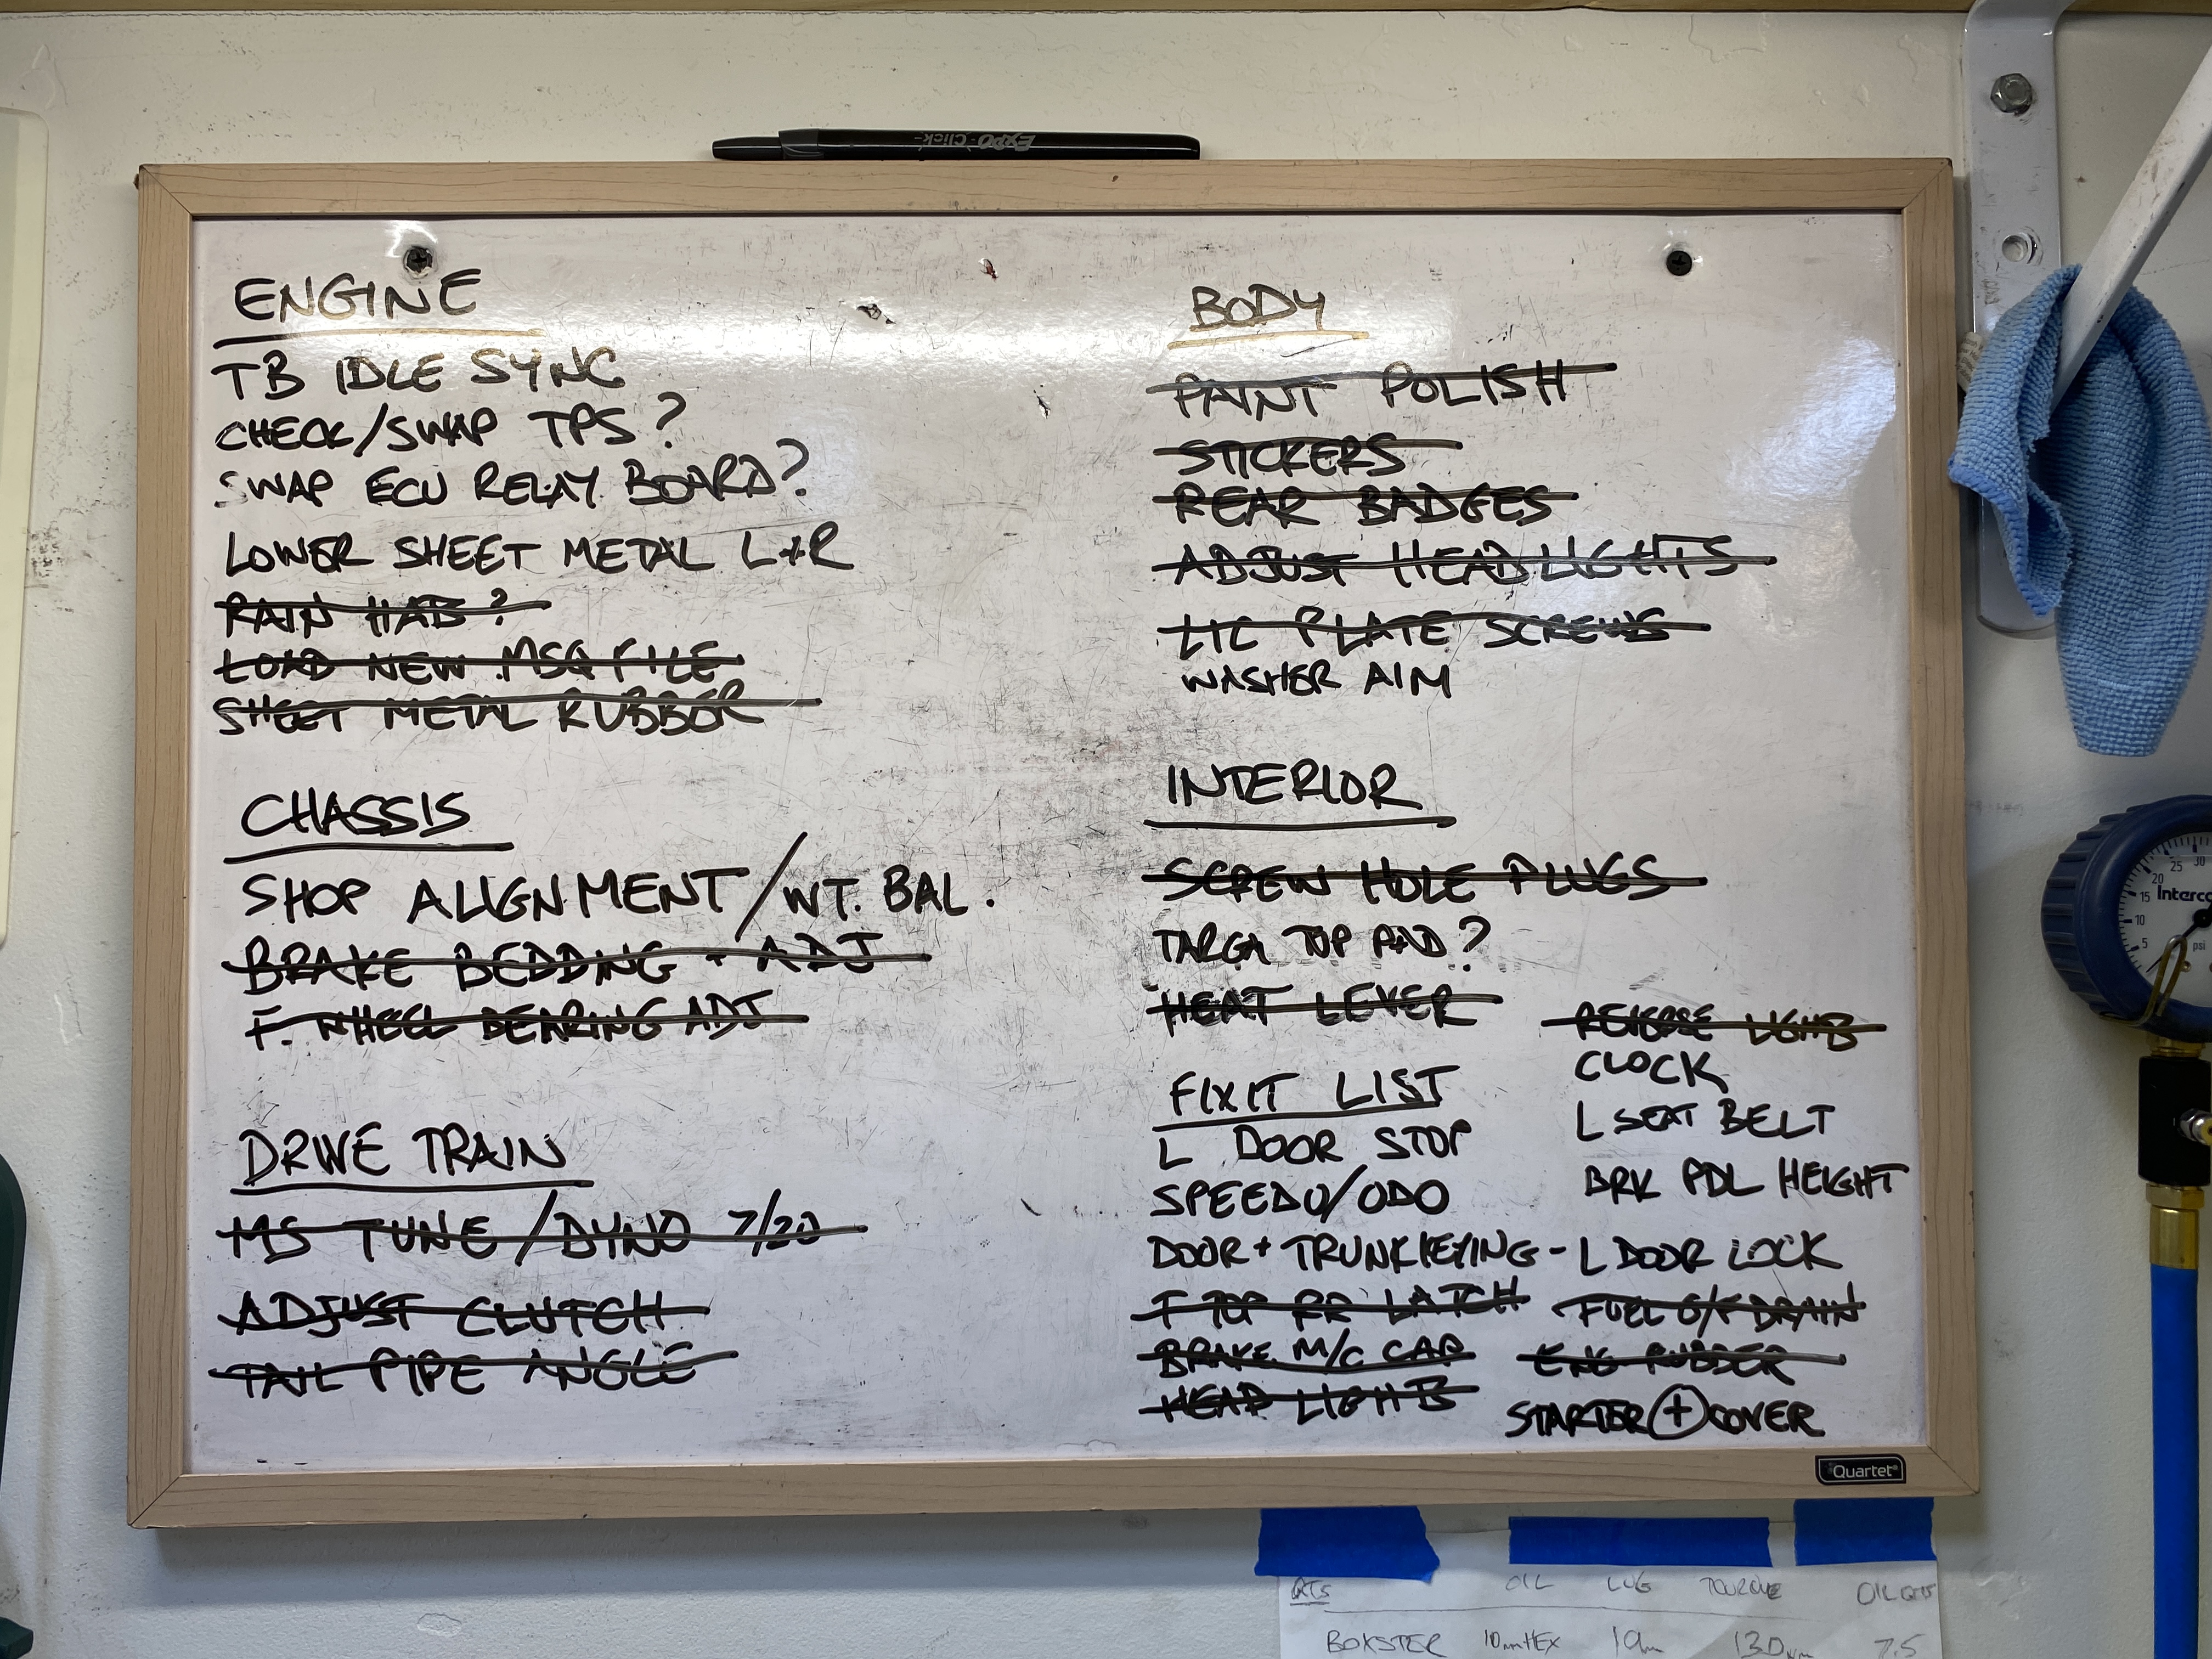 EXPO Click
ENGINE
TB IDLE SYNC
CHECK/SWAP TPS?
SWAP ECU RELAY BOARD?
LOWER SHEET METAL L+R
RAIN HAB?
LOAD NEW .MSQ FILE
SHEET METAL RUBBER
CHASSIS
SHOP ALIGNMENT/WT. BAL.
BRAKE BEDDING + ADJ
F. WHEEL BEARING ADJ
DRIVE TRAIN
MS TUNE/DYNO 7/20
ADJUST CLUTCH
TAIL PIPE ANGLE
BODY
PAINT POLISH
STICKERS
REAR BADGES
ADJUST HEADLIGHTS
LIC PLATE SCREWS
WASHER AIM
INTERIOR
SCREW HOLE PLUGS
TARGA TOP PAD?
HEAT LEVER
FIXIT LIST
L DOOR STOP
SPEEDO/ODO
DOOR + TRUNK KEYING - L DOOR LOCK
T TOP RR LATCH
BRAKE M/C CAP
HEAD LIGHTS
REVERSE LIGHTS
CLOCK
L SEAT BELT
BRK PDL HEIGHT
FUEL O/F DRAIN
ENG RUBBER
STARTER + COVER
Quartet
OIL LUG TORQUE OIL QTS
BOXSTER 10mm HEX 19m 130 7.5
5 10 15 20 25 30
psi